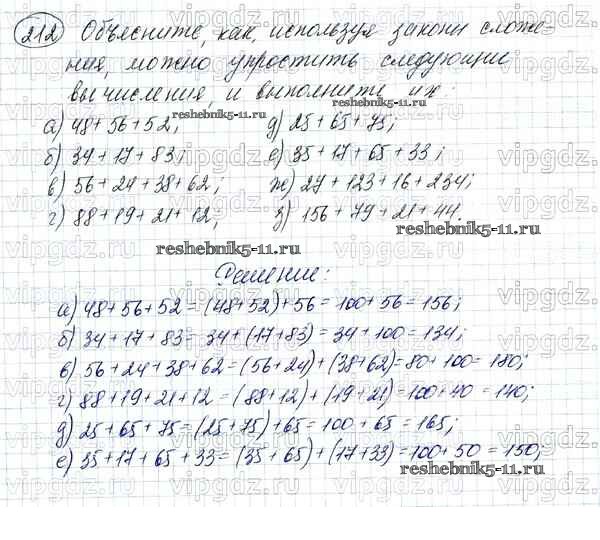 212 Объясните, как, используя законы сложе-
ния, можно упростить следующие
вычисления, и выполните их:
reshebnik5-11.ru
а) 48+56+52; д) 25+65+75;
reshebnik5-11.ru
б) 34+17+83; е) 35+17+65+33;
в) 56+24+38+62; ж) 27+123+16+234;
г) 88+19+21+12; з) 156+79+21+44.
reshebnik5-11.ru
reshebnik5-11.ru
Решение:
а) 48+56+52=(48+52)+56=100+56=156;
б) 34+17+83=34+(17+83)=34+100=134;
в) 56+24+38+62=(56+24)+(38+62)=80+100=180;
г) 88+19+21+12=(88+12)+(19+21)=100+40=140;
д) 25+65+75=(25+75)+65=100+65=165;
е) 35+17+65+33=(35+65)+(17+33)=100+50=150;
reshebnik5-11.ru
reshebnik5-11.ru
vipgdz.ru